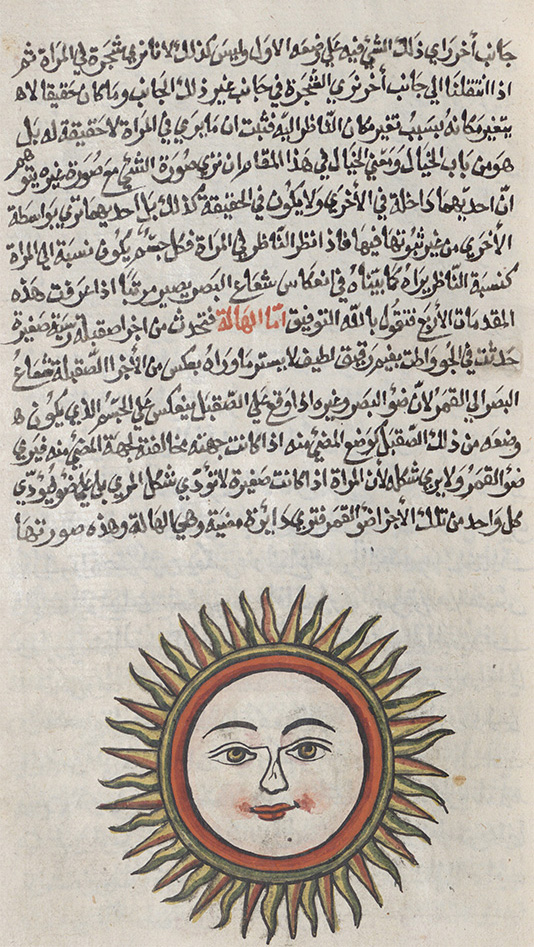 جانب أخر راي ذلك الشئ فيه علي وضعه الاول وليس كذلك لانا نري شجرة في المراة ثم
اذا انتقلنا الي جانب أخر نري الشجرة في جانب غير ذلك الجانب وما كان حقيقا لا
يتغير مكانه بسبب تغير مكان الناظر اليه فثبت ان ما يري في المراة لا حقيقة له بل
هو من باب الخيال ومعني الخيال في هذا المقام ان نري صورة الشئ مع صورة غيره يتوهم
ان احديهما داخلة في الأخري ولا يكون في الحقيقة كذلك بل احديهما تري بواسطة
الأخري من غير ثبوتها فيها فاذا نظر الناظر في المراة فكل جسم يكون نسبة الي المراة
كنسبة الناظر يراه كما بيناه في انعكاس شعاع البصر يصير مرئيا اذا عرفت هذه
المقدمات الأربع فنقول بالله التوفيق اما الهالة فتحدث من اجزا صقيلة رشية صغيرة
حدثت في الجو واحاطت بغيم رقيق لطيف لا يستر ما وراه ينعكس من الأجزا الصقيلة شعاع
البصر الي القمر لأن ضو البصر وغيره اذا وقع علي الصقيل ينعكس علي الجسم الذي يكون
وضعه من ذلك الصقيل كوضع المضئ منه اذا كانت جهته مخالفة لجهة المضئ منه فيري
ضو القمر ولا يري شكله لأن المراة اذا كانت صغيرة لا تؤدي شكل المري بل علي ضو فيؤدي
كل واحد من تلك الأجزا ضو القمر فتري دايرة مضية وهي الهالة وهذه صورتها